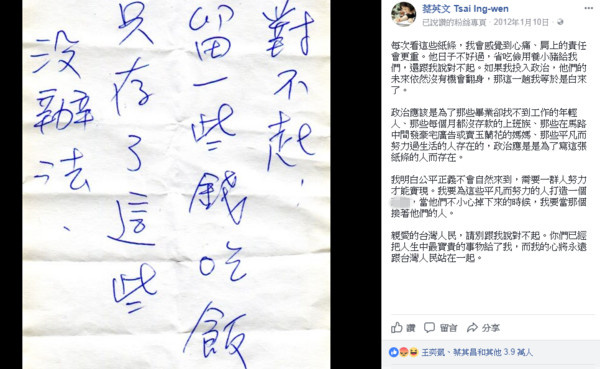 對不起,
留一些錢吃飯
只存了這些
沒辦法.
蔡英文 Tsai Ing-wen
已說讚的粉絲專頁 · 2012年1月10日 ·
每次看這些紙條，我會感覺到心痛、肩上的責任
會更重。他日子不好過，省吃儉用養小豬給我
們，還跟我說對不起。如果我投入政治，他們的
未來依然沒有機會翻身，那這一趟我等於是白來
了。
政治應該是為了那些畢業卻找不到工作的年輕
人、那些每個月都沒存款的上班族、那些在馬路
中間發豪宅廣告或賣玉蘭花的媽媽、那些平凡而
努力過生活的人存在的，政治應是是為了寫這張
紙條的人而存在。
我明白公平正義不會自然來到，需要一群人努力
才能實現。我要為這些平凡而努力的人打造一個
，當他們不小心掉下來的時候，我要當那個
接著他們的人。
親愛的台灣人民，請別跟我說對不起。你們已經
把人生中最寶貴的事物給了我，而我的心將永遠
跟台灣人民站在一起。
讚 留言 分享
王奕凱、蔡其昌和其他 3.9 萬人